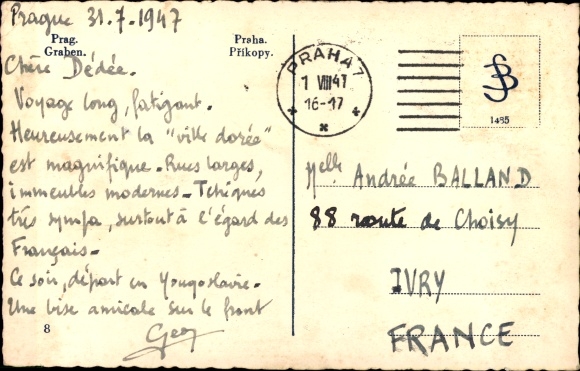 Prague 31.7.1947
Prag.
Graben.
Praha.
Příkopy.
Chère Dédée.
Voyage long, fatigant.
Heureusement la "ville dorée"
est magnifique. Rues larges,
immeubles modernes. Tchèques
très sympa, surtout à l'égard des
Français.
Ce soir, départ en Yougoslavie.
Une bise amicale sur le front
Geo
8
PRAHA 7
1 VIII 47
16-17
1485
Melle Andrée BALLAND
88 route de Choisy
IVRY
FRANCE